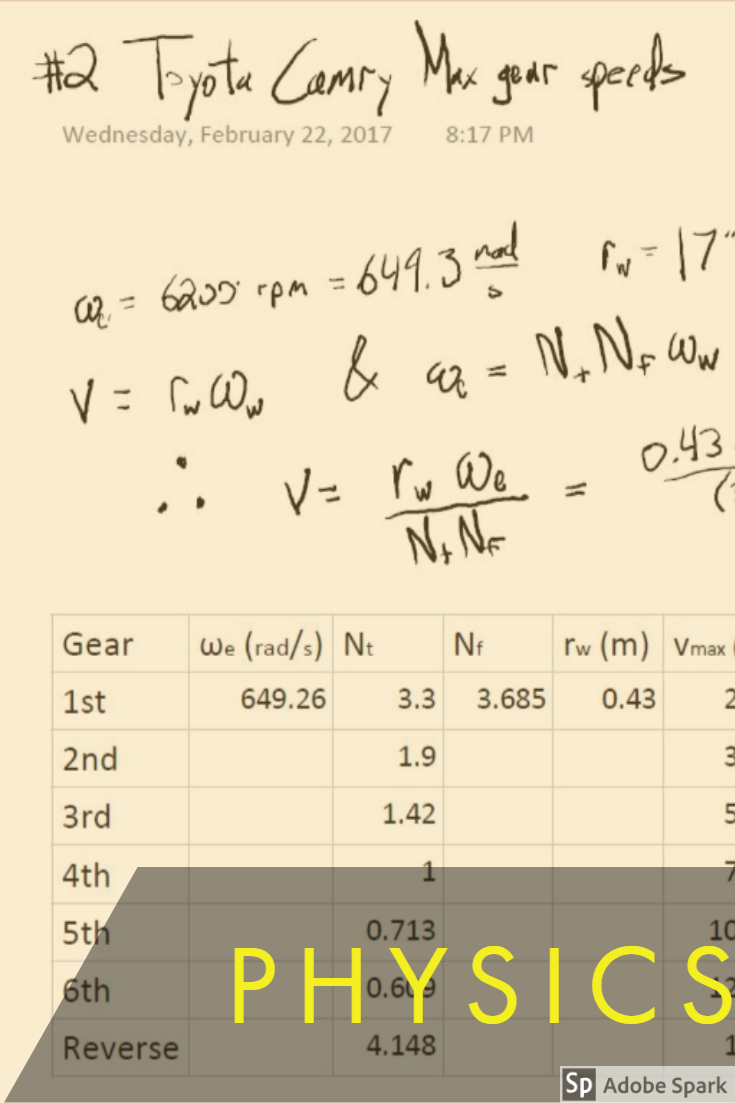 #2 Toyota Camry Max gear speeds
Wednesday, February 22, 2017 8:17 PM
ωe = 6200 rpm = 649.3 rad/s rw = 17"
V = rw ωw & ωe = Nt NF ωw
∴ V = rw ωe / Nt NF = 0.43
Gear ωe (rad/s) Nt Nf rw (m) Vmax (
1st 649.26 3.3 3.685 0.43 2
2nd 1.9 3
3rd 1.42 5
4th 1 7
5th 0.713 10
6th 0.609 12
PHYSICS
Reverse 4.148 1
Sp Adobe Spark